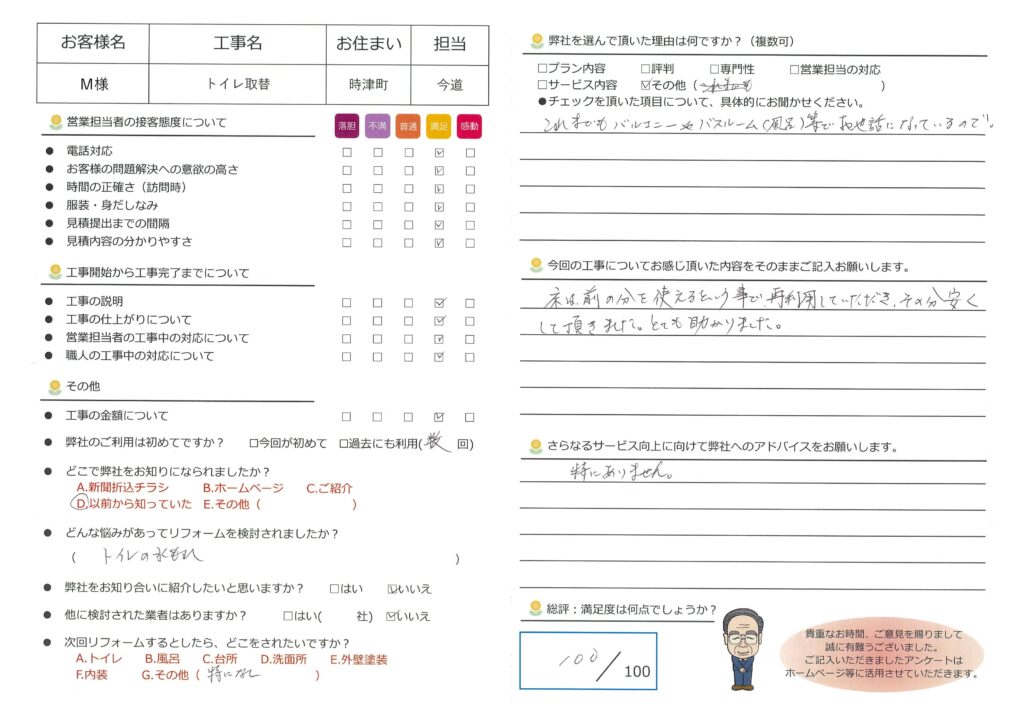 お客様名 工事名 お住まい 担当
M様 トイレ取替 時津町 今道
営業担当者の接客態度について 落胆 不満 普通 満足 感動
● 電話対応 □ □ □ ☑ □
● お客様の問題解決への意欲の高さ □ □ □ ☑ □
● 時間の正確さ（訪問時） □ □ □ ☑ □
● 服装・身だしなみ □ □ □ ☑ □
● 見積提出までの間隔 □ □ □ ☑ □
● 見積内容の分かりやすさ □ □ □ ☑ □
工事開始から工事完了までについて
● 工事の説明 □ □ □ ☑ □
● 工事の仕上がりについて □ □ □ ☑ □
● 営業担当者の工事中の対応について □ □ □ ☑ □
● 職人の工事中の対応について □ □ □ ☑ □
その他
● 工事の金額について □ □ □ ☑ □
● 弊社のご利用は初めてですか？ □今回が初めて □過去にも利用(数 回)
● どこで弊社をお知りになられましたか？
A.新聞折込チラシ B.ホームページ C.ご紹介
D.以前から知っていた E.その他（ ）
● どんな悩みがあってリフォームを検討されましたか？
（ トイレの水もれ ）
● 弊社をお知り合いに紹介したいと思いますか？ □はい ☑いいえ
● 他に検討された業者はありますか？ □はい( 社) ☑いいえ
● 次回リフォームするとしたら、どこをされたいですか？
A.トイレ B.風呂 C.台所 D.洗面所 E.外壁塗装
F.内装 G.その他（ 特になし ）
弊社を選んで頂いた理由は何ですか？（複数可）
□プラン内容 □評判 □専門性 □営業担当の対応
□サービス内容 ☑その他（ ）
●チェックを頂いた項目について、具体的にお聞かせください。
これまでもバルコニーやバスルーム(風呂)等でお世話になっているので。
今回の工事についてお感じ頂いた内容をそのままご記入お願いします。
床は、前の分を使えるという事で、再利用していただき、その分安く
して頂きました。とても助かりました。
さらなるサービス向上に向けて弊社へのアドバイスをお願いします。
特にありません。
総評：満足度は何点でしょうか？
100/100
貴重なお時間、ご意見を賜りまして
誠に有難うございました。
ご記入いただきましたアンケートは
ホームページ等に活用させていただきます。